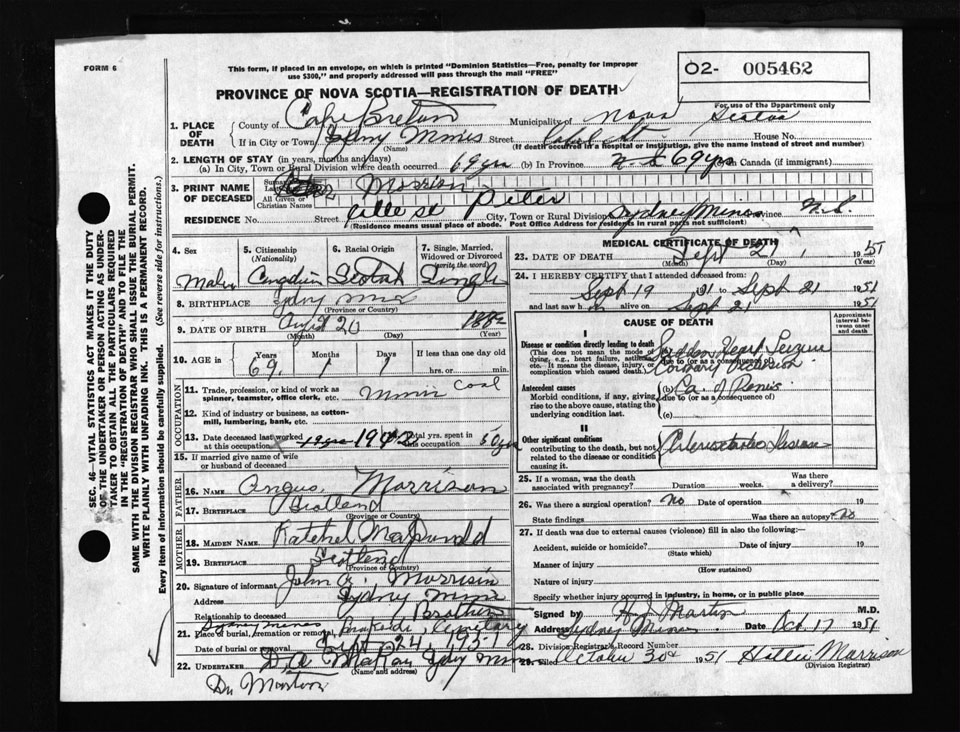 FORM 6
This form, if placed in an envelope, on which is printed "Dominion Statistics—Free, penalty for improper
use $300," and properly addressed will pass through the mail "FREE"
02- 005462
For use of the Department only
PROVINCE OF NOVA SCOTIA—REGISTRATION OF DEATH
1. PLACE OF DEATH
County of Cape Breton Municipality of Nova Scotia
If in City or Town Sydney Mines Street House No.
(Name) (If death occurred in a hospital or institution, give the name instead of street and number)
2. LENGTH OF STAY (in years, months and days)
(a) In City, Town or Rural Division where death occurred 69 yrs (b) In Province N.S 69 yrs Canada (if immigrant)
3. PRINT NAME OF DECEASED
Surname Last Morrison
All Given or Christian Names Peter
RESIDENCE No. Street City, Town or Rural Division Sydney Mines Province N.S.
(Residence means usual place of abode. Post Office Address for residents in rural parts not sufficient)
4. Sex 5. Citizenship (Nationality) 6. Racial Origin 7. Single, Married, Widowed or Divorced (write the word)
Male Canadian Scotch Single
8. BIRTHPLACE Sydney Mines
(Province or Country)
9. DATE OF BIRTH 20 1882
(Month) (Day) (Year)
10. AGE in Years Months Days If less than one day old
69 1 1 hrs. or min.
OCCUPATION
11. Trade, profession, or kind of work as spinner, teamster, office clerk, etc. Miner Coal
12. Kind of industry or business, as cotton-mill, lumbering, bank, etc.
13. Date deceased last worked at this occupation 1942 Total yrs. spent in this occupation 50 yrs
15. If married give name of wife or husband of deceased
FATHER
16. NAME Angus Morrison
17. BIRTHPLACE Scotland
(Province or Country)
MOTHER
18. MAIDEN NAME
19. BIRTHPLACE Scotland
(Province or Country)
20. Signature of informant John A. Morrison
Address Sydney Mines
Relationship to deceased Brother
21. Place of burial, cremation or removal Sydney Mines Cemetery
Date of burial or removal Sept 24 1951
22. UNDERTAKER D.A. Sydney Mines
(Name and address)
Dr Martin
MEDICAL CERTIFICATE OF DEATH
23. DATE OF DEATH Sept 21 1951
(Month) (Day) (Year)
24. I HEREBY CERTIFY that I attended deceased from:
Sept 19 1951 to Sept 21 1951
and last saw h alive on Sept 21 1951
CAUSE OF DEATH
Approximate interval between onset and death
I
Disease or condition directly leading to death
(This does not mean the mode of dying, e.g., heart failure, asthenia, etc. It means the disease, injury, or complication which caused death.)
Sudden Heart Seizure
due to (or as a consequence of)
Coronary Occlusion
Antecedent causes
Morbid conditions, if any, giving rise to the above cause, stating the underlying condition last.
(b) Ca. of Penis
due to (or as a consequence of)
(c)
II
Other significant conditions
contributing to the death, but not related to the disease or condition causing it.
25. If a woman, was the death associated with pregnancy? Duration weeks. Was there a delivery?
26. Was there a surgical operation? No Date of operation 19
State findings Was there an autopsy? No
27. If death was due to external causes (violence) fill in also the following:
Accident, suicide or homicide? Date of injury 19
(State which)
Manner of injury
(How sustained)
Nature of injury
Specify whether injury occurred in industry, in home, or in public place
Signed by H.J. Martin M.D.
Address Sydney Mines Date Oct. 17 1951
28. Division Registrar's Record Number
29. Filed October 30 1951 Morrison
(Division Registrar)
SEC. 46—VITAL STATISTICS ACT MAKES IT THE DUTY
OF THE UNDERTAKER OR PERSON ACTING AS UNDER-
TAKER TO OBTAIN ALL THE PARTICULARS REQUIRED
IN THE "REGISTRATION OF DEATH" AND TO FILE IT
WITH THE DIVISION REGISTRAR WHO SHALL ISSUE THE BURIAL PERMIT.
WRITE PLAINLY WITH UNFADING INK. THIS IS A PERMANENT RECORD.
Every item of information should be carefully supplied. (See reverse side for instructions.)